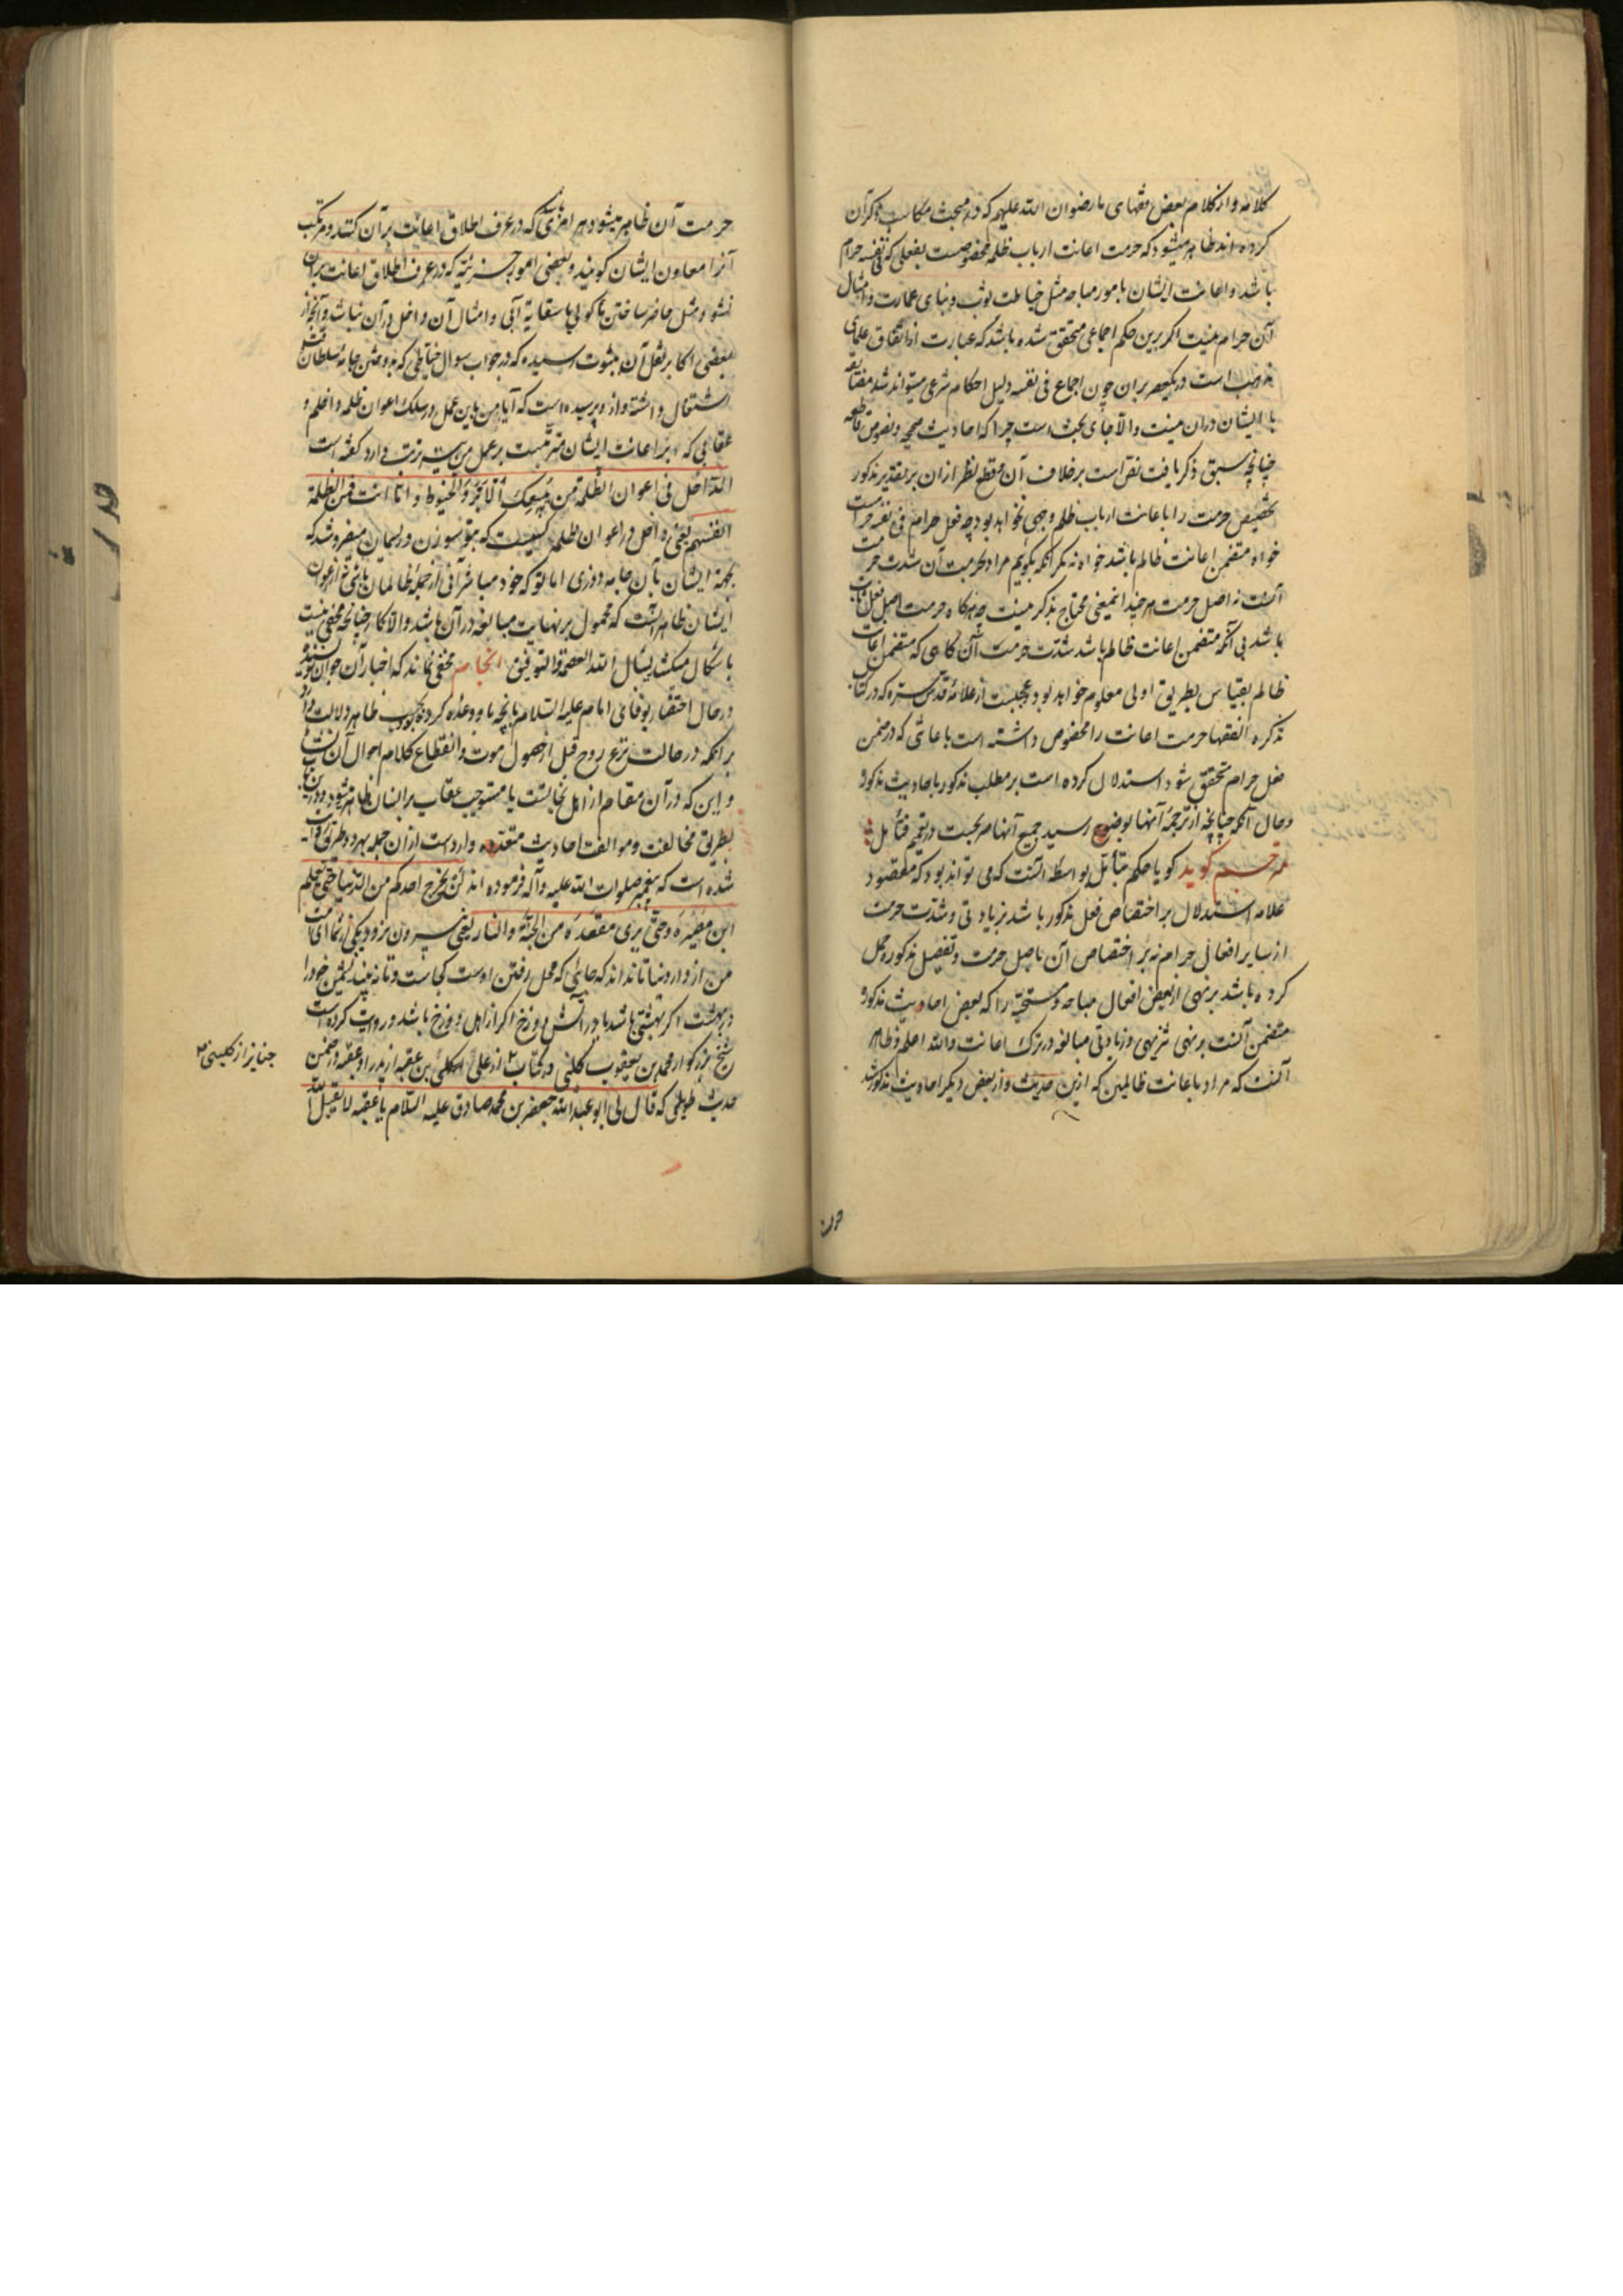 کلانه و از کلام بعض فقهای ما رضوان الله علیهم که در مبحث مکاسب ذکر آن
کرده اند ظاهر میشود که حرمت اعانت ارباب ظلم مخصوصست بفعلی که فی نفسه حرام
باشد و اعانت ایشان بامور مباحه مثل خیاطت ثوب و بنای عمارت و امثال
آن حرام نیست اگر برین حکم اجماعی متحقق شده باشد که عبارت از اتفاق علمای
مذهب است در یکعصر بران چون اجماع فی نفسه دلیل احکام شرعی میتواند شد مضایقه
با ایشان دران نیست والا جای بحث است چرا که احادیث صحیحه و نصوص قاطعه
چنانچه سبق ذکر یافت نص است بر خلاف آن و قطع نظر ازان بر تقدیر مذکور
تخصیص حرمت را باعانت ارباب ظلم وجهی نخواهد بود چه فعل حرام فی نفسه حرامست
خواه متضمن اعانت ظالم باشد خواه نه مگر آنکه بگوییم مراد بحرمت آن شدت حرمت
آنست نه اصل حرمت هر چند اینمعنی محتاج بذکر نیست چه هرگاه حرمت اصل فعل ثابت
باشد بی آنکه متضمن اعانت ظالم باشد شدت حرمت آن گاهی که متضمن اعانت
ظالم بقیاس بطریق اولی معلوم خواهد بود و عجبست از علامه قدس سره که در کتاب
تذکرة الفقها حرمت اعانت را مخصوص داشته است باعانتی که در ضمن
فعل حرام متحقق شود استدلال کرده است بر مطلب مذکور باحادیث مذکوره
و حال آنکه چنانچه از ترجمه آنها بوضوح رسید جمیع آنها صریحست در تعمیم فتأمل
مترجم گوید گویا حکم بتأمل بواسطه آنست که می تواند بود که مقصود
علامه استدلال بر اختصاص فعل مذکور باشد بزیادتی و شدت حرمت
از سایر افعال حرام نه بر اختصاص آن باصل حرمت و تفصیل مذکوره و حمل
کرده باشد بر نهی از بعض افعال مباحه و مستحبه را که بعض احادیث مذکوره
متضمن آنست بر نهی تنزیهی و زیادتی مبالغه در ترک اعانت والله اعلم و ظاهر
آنست که مراد باعانت ظالمین که ازین حدیث و از بعض دیگر احادیث مذکوره شد
حرمت
حرمت آن ظاهر میشود هر امری باشد که در عرف اطلاق اعانت بر آن کنند و مرتکب
آنرا معاون ایشان گویند و بعضی امور جزئیه که در عرف اطلاق اعانت بران
نشود مثل حاضر ساختن ماکولی یا سقایه آبی و امثال آن داخل در آن نباشد و آنچه از
بعضی اکابر نقل آن بثبوت رسیده که در جواب سوال خیاطی که بدوختن جامه سلطان وقت
اشتغال داشته و از او پرسیده است که آیا من باین عمل در سلک اعوان ظلمه داخلم و
عقابی که بر اعانت ایشان مترتبست بر عمل من نیز مترتب دارد گفته است
الداخل فی اعوان الظلمة من یبیعک الابر و الخیوط و اما انت فمن الظلمة
انفسهم یعنی داخل در اعوان ظلمه کسیست که بتو سوزن و ریسمان میفروشد که
بجهة ایشان بآن جامه دوزی اما تو که خود مباشر آنی از جمله ظالمان یا نوع از اعوان
ایشان ظاهر آنست که محمول بر نهایت مبالغه در آن باشد والا کار چنانچه مخفی نیست
باشکال میکشد نسأل الله العصمة و التوفیق انجام مخفی نماند که اخبار آن جوان توبه
در حال احتضار بوفای امام علیه السلام بآنچه با او وعده کرده بود بحسب ظاهر دلالت دارد
بر آنکه در حالت نزع روح قبل از حصول موت و انقطاع کلام احوال آن نشأ
و این که در آن مقام از اهل نجاتست یا مستوجب عقاب بر انسان ظاهر میشود و درین باب
بطریق مخالف و موالف احادیث متعدده وارد است ازان جمله بهر دو طریق روایت
شده است که پیغمبر صلوات الله علیه و آله فرموده اند لن یخرج احدکم من الدنیا حتی یعلم
این مصیره و حتی یری مقعده من الجنة و النار یعنی بیرون نرود یکی از شما ای امت
من از دار دنیا تا نداند که جائی که محل رفتن اوست کجاست و تا نه بیند نشیمن خود را
در بهشت اگر بهشتی باشد یا در آتش دوزخ اگر از اهل دوزخ باشد و روایت کرده است
شیخ بزرگوار محمد بن یعقوب کلینی در کتاب از علی بن عقبه از پدر او عقبه در ضمن
حدیث طویلی که قال لی ابو عبدالله جعفر بن محمد صادق علیه السلام یا عقبه لا یقبل الله
جنایز از کلینی